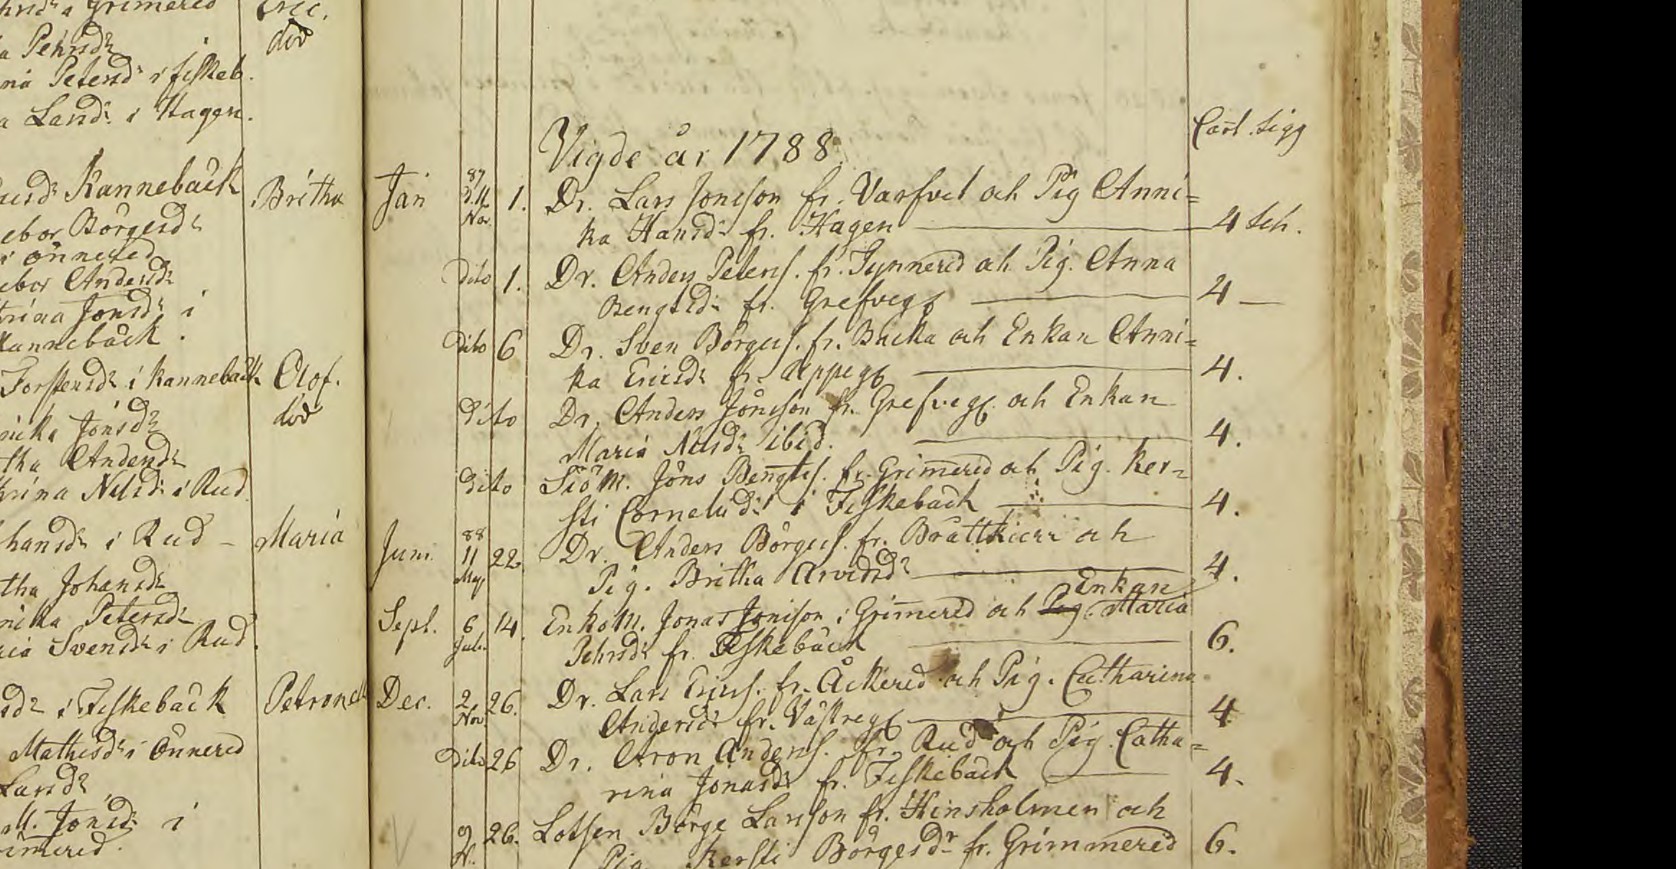 Grimered
död
a Pehrsdr
na Petersd. i Fiskeb.
a Larsd. i Hagen.
Kannebäck Britha
ebor Börgesdr
i Önnered
ebor Andersdr
trina Jonsdr i
Kannebäck.
Torstensdr i Kannebäck Olof.
död
nika Jonsdr
tha Andersdr
trina Nilsdr i Rud
hansdr i Rud Maria
tha Johansdr
nika Petersdr
ria Svensdr i Rud.
sdr i Fiskebäck
Mathesdr i Önnered
Larsdr
M. Jonsdr i
Vigde år 1788
Jan 87 Nov. 1. Dr. Lars Jonsson fr. Varfvet och Pig Anni=
ka Hansdr fr. Hagen 4 sch.
dito 1. Dr. Anders Peters. fr. Tynnered och Pig. Anna
Bengtsdr fr. Grefvegg 4 —
dito 6 Dr. Sven Börges. fr. Backa och Enkan Anni=
ka Ericsdr fr. 4.
dito Dr. Anders Jönsson fr. Grefvegg. och Enkan
Maria Nilsdr ibid. 4.
dito Siöm. Jöns Bengts. fr. Grimered och Pig. Ker=
sti Cornelisdr i Fiskebäck 4.
Juni 88 11 Maj 22 Dr. Anders Börges. fr. Brattkierr och
Pig. Britha Arvidsdr 4.
Enkan
Sept. 6 Juli 14. Enkom. Jonas Jonsson i Grimered och Pig. Maria
Pehrsdr fr. Fiskebäck 6.
Dec. 2 Nov 26. Dr. Lars Erics. fr. Åckered och Pig. Catharina
Andersdr fr. Västregg 4
dito 26 Dr. Aron Anders. fr. Rud och Pig. Catha=
rina Jonasdr fr. Fiskebäck 4.
9 N. 26. Lotsen Börge Larsson fr. Hinsholmen och
Pig. Kersti Börgesdr fr. Grimmered 6.